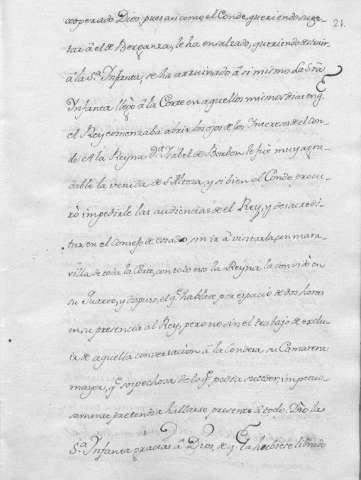 21.
operado Dios, pues asi como el Conde, queriendo suge-
tar à el de Berganza, le ha ensalzado, queriendo destruir
à la S.ª Infanta, se ha arruinado à si mismo. La S.ra
Infanta llegò à la Corte en aquellos mismos dias en q.
el Rey comenzaba abrir los ojos de los sucesos del con-
de. A la Reyna D.ª Isabel de Borbon le fue muy agra-
dable la venida de S. Alteza, y si bien el Conde procu-
rò impedirle las audiencias de el Rey, y desacredi-
tar en el consejo de estado sin ir à visitarla, con mara-
villa de toda la Corte, con todo eso la Reyna la convidò en
su Quarto, y dispuso el q.e hablase por espacio de dos horas
en su presencia al Rey, pero no sin el trabajo de exclu-
ir de aquella conversacion à la Condesa su Camarera
mayor, q.e sospechosa de lo q.e podia suceder, impetuo-
samente pretendia hallarse presente à todo. Diò la
S.ª Infanta gracias à Dios de q.e la hubiese librado